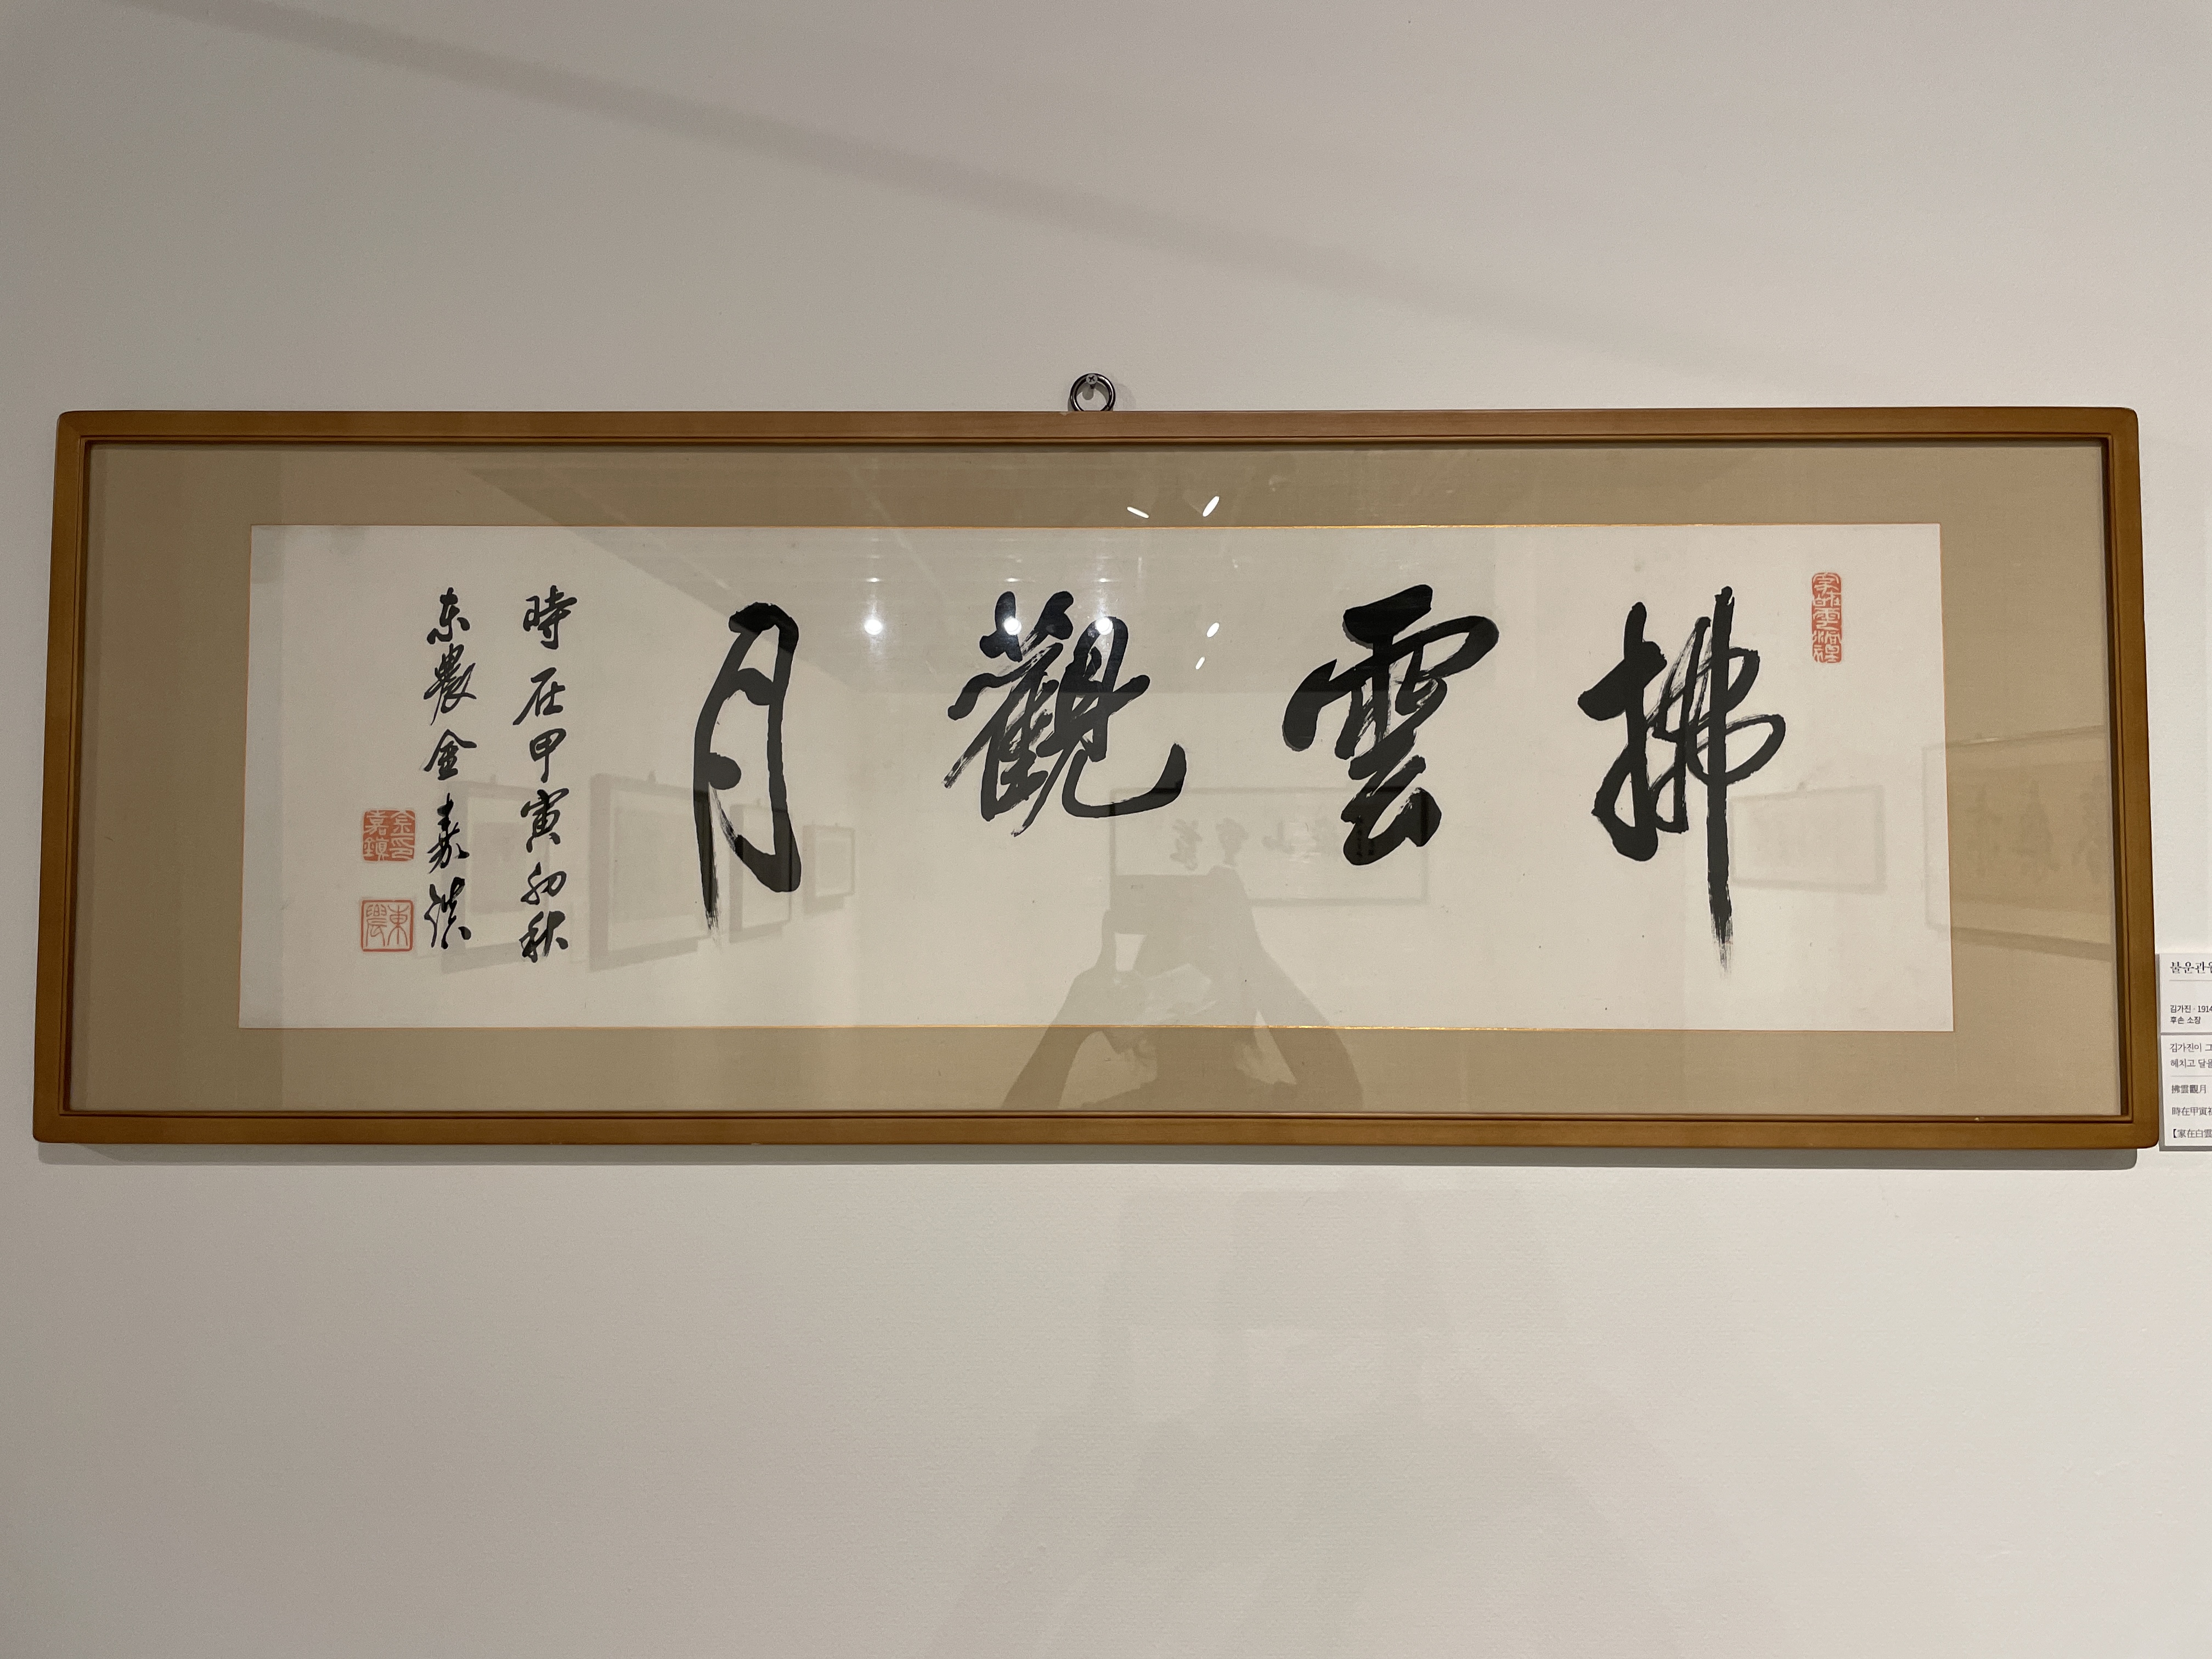 拂雲觀月
時在甲寅初秋
东農金嘉鎮
金印嘉鎮
東農
불운관월
김가진 · 1914
후손 소장
김가진이 그
헤치고 달을
拂雲觀月
時在甲寅初
【家在白雲